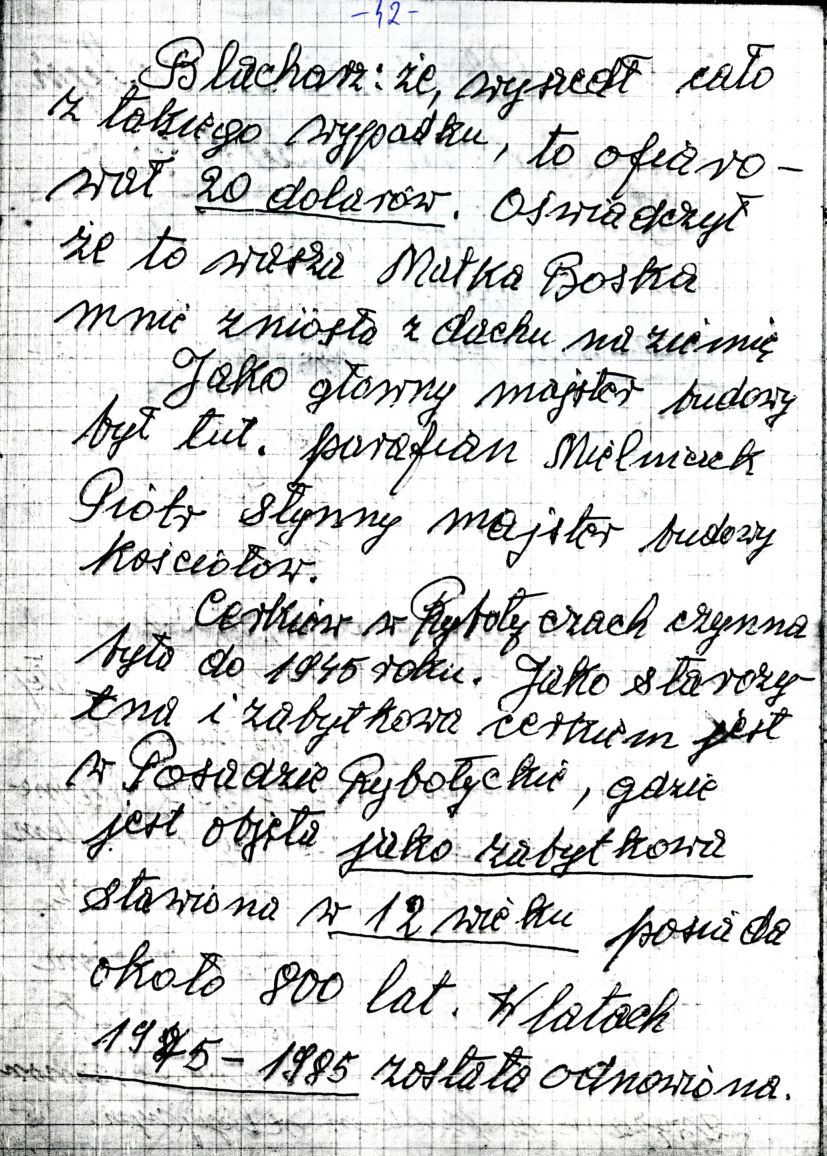 -42-
Blacharz: że, wyszedł cało
z takiego wypadku, to ofiaro-
wał 20 dolarów. Oświadczył
że to wasza Matka Boska
mnie zniosła z dachu na ziemię
Jako głowny majster budowy
był tut. parafian Mielniczek
Piotr słynny majster budowy
Kościołów.
Cerkiew w Rybotyczach czynna
była do 1945 roku. Jako starczy-
tna i zabytkowa cerkiem jest
w Posadzie Rybotyckie, gdzie
jest objęta jako zabytkowa
stawiona w 12 wieku posiada
około 800 lat. W latach
1975-1985 została odnowiona.